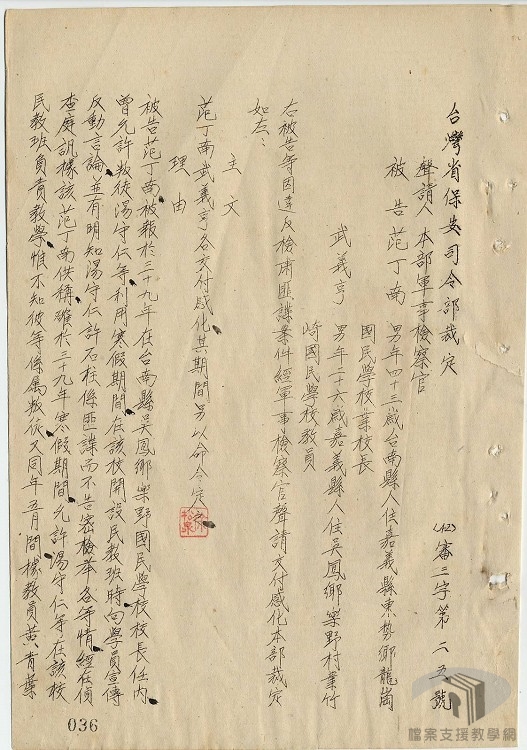 台灣省保安司令部裁定
(42)審三字第二五號
聲請人 本部軍事檢察官
被告 范丁南 男年四十三歲台南縣人住嘉義縣東勢鄉龍崗
國民學校業校長
武義亨 男年二十六歲嘉義縣人住吳鳳鄉樂野村業竹
崎國民學校教員
右被告等因違反檢肅匪諜案件經軍事檢察官聲請交付感化本部裁定
如左：
主文
范丁南武義亨各交付感化其期間另以命令定之
理由
被告范丁南被報於三十九年在台南縣吳鳳鄉樂野國民學校校長任內
曾允許叛徒湯守仁等利用寒假期間在該校開設民教班時向學員宣傳
反動言論並有明知湯守仁許石柱係匪諜而不告密檢舉各等情經在偵
查庭訊據該范丁南供稱雖於三十九年寒假期間允許湯守仁等在該校
民教班負責教學惟不知彼等係屬叛徒又同年五月間據教員黃青葉
036
檔案支援教學網